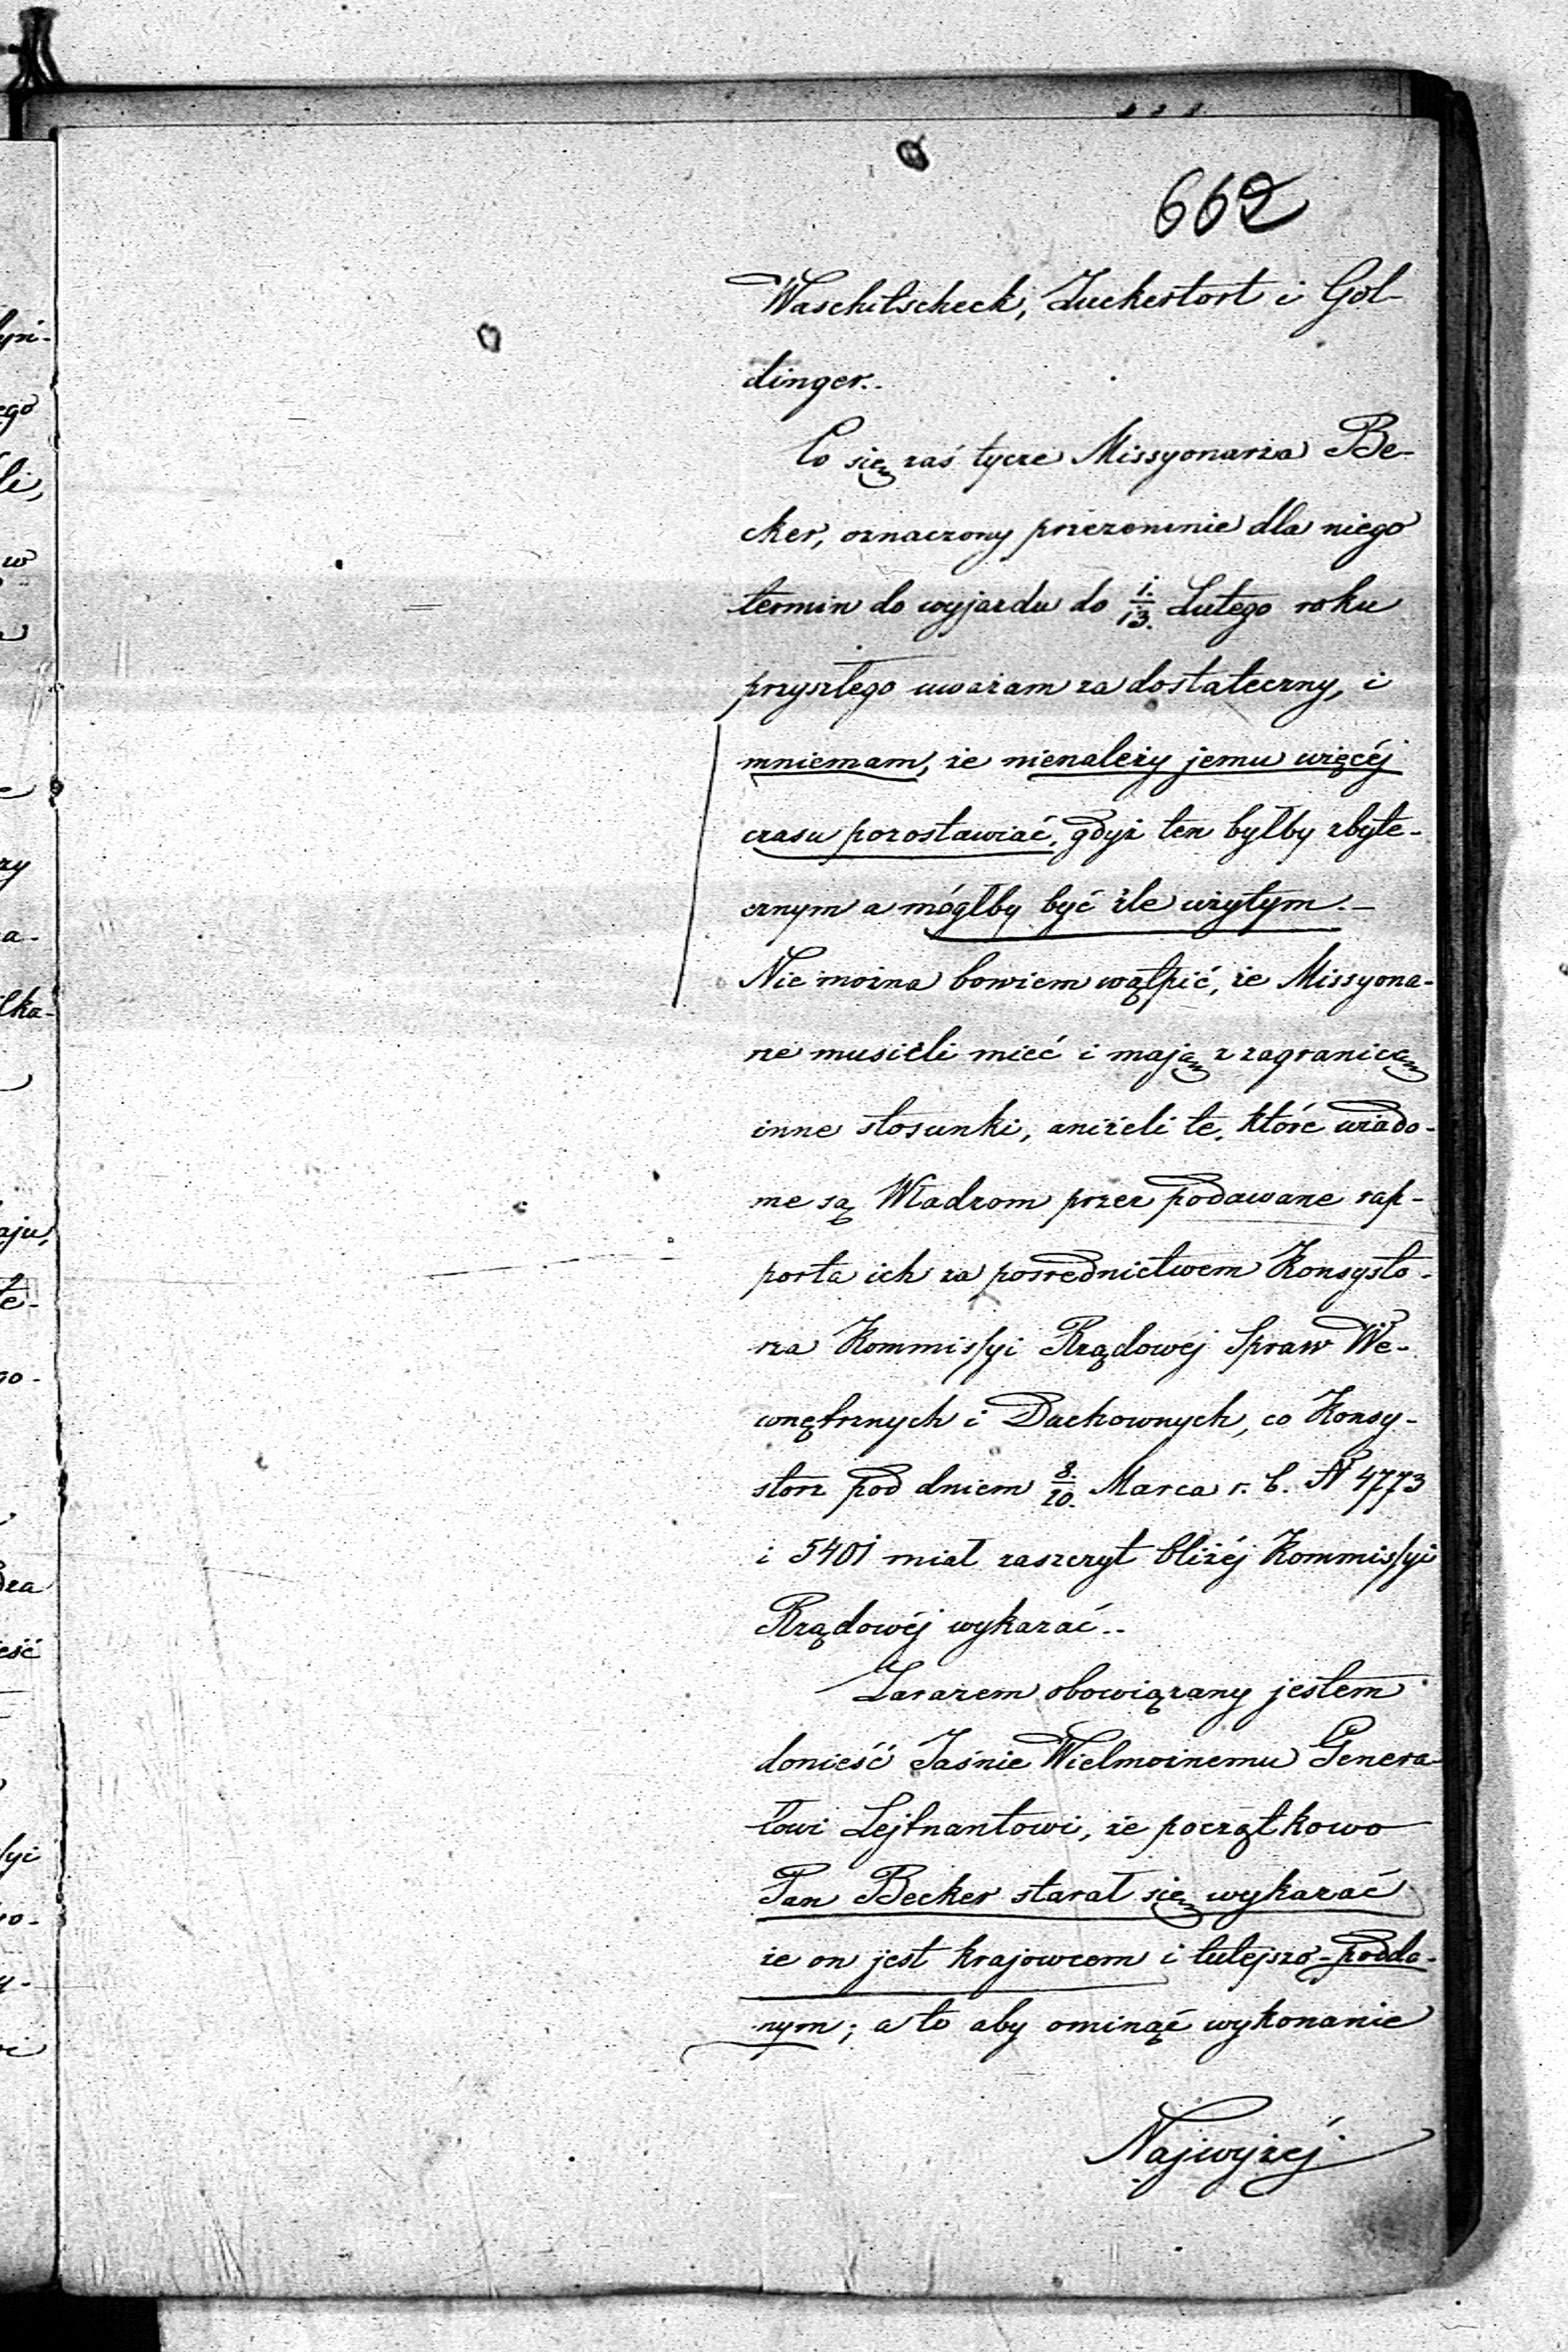 662
Waschitscheck, Zuckertort i Gol-
dinger.
Co się zaś tycze Missyonarza Be-
cker, oznaczony przezemnie dla niego
termin do wyjazdu do 1./13. Lutego roku
przyszłego uważam za dostateczny, i
mniemam, że nienależy jemu więcéj
czasu pozostawiać, gdyż ten byłby zbyte-
cznym a mógłby być źle użytym.-
Nie można bowiem wątpić, że Missyona-
rze musieli mieć i mają z zagranicą
inne stosunki, aniżeli te, które wiado-
me są Władzom przez podawane rap-
porta ich za pośrednictwem Konsysto-
rza Kommissyi Rządowéj Spraw We-
wnętrznych i Duchownych, co Konsy-
storz pod dniem 8./20. Marca r. b. N 4773
i 5401 miał zaszczyt bliżéj Kommissyi
Rządowéj wykazać..
Zarazem obowiązany jestem
donieść Jaśnie Wielmożnemu Genera-
łowi Lejtnantowi, że początkowo
Pan Becker starał się wykazać
że on jest krajowcem i tutejszo-podda-
nym; a to aby ominąć wykonanie
Najwyżéj